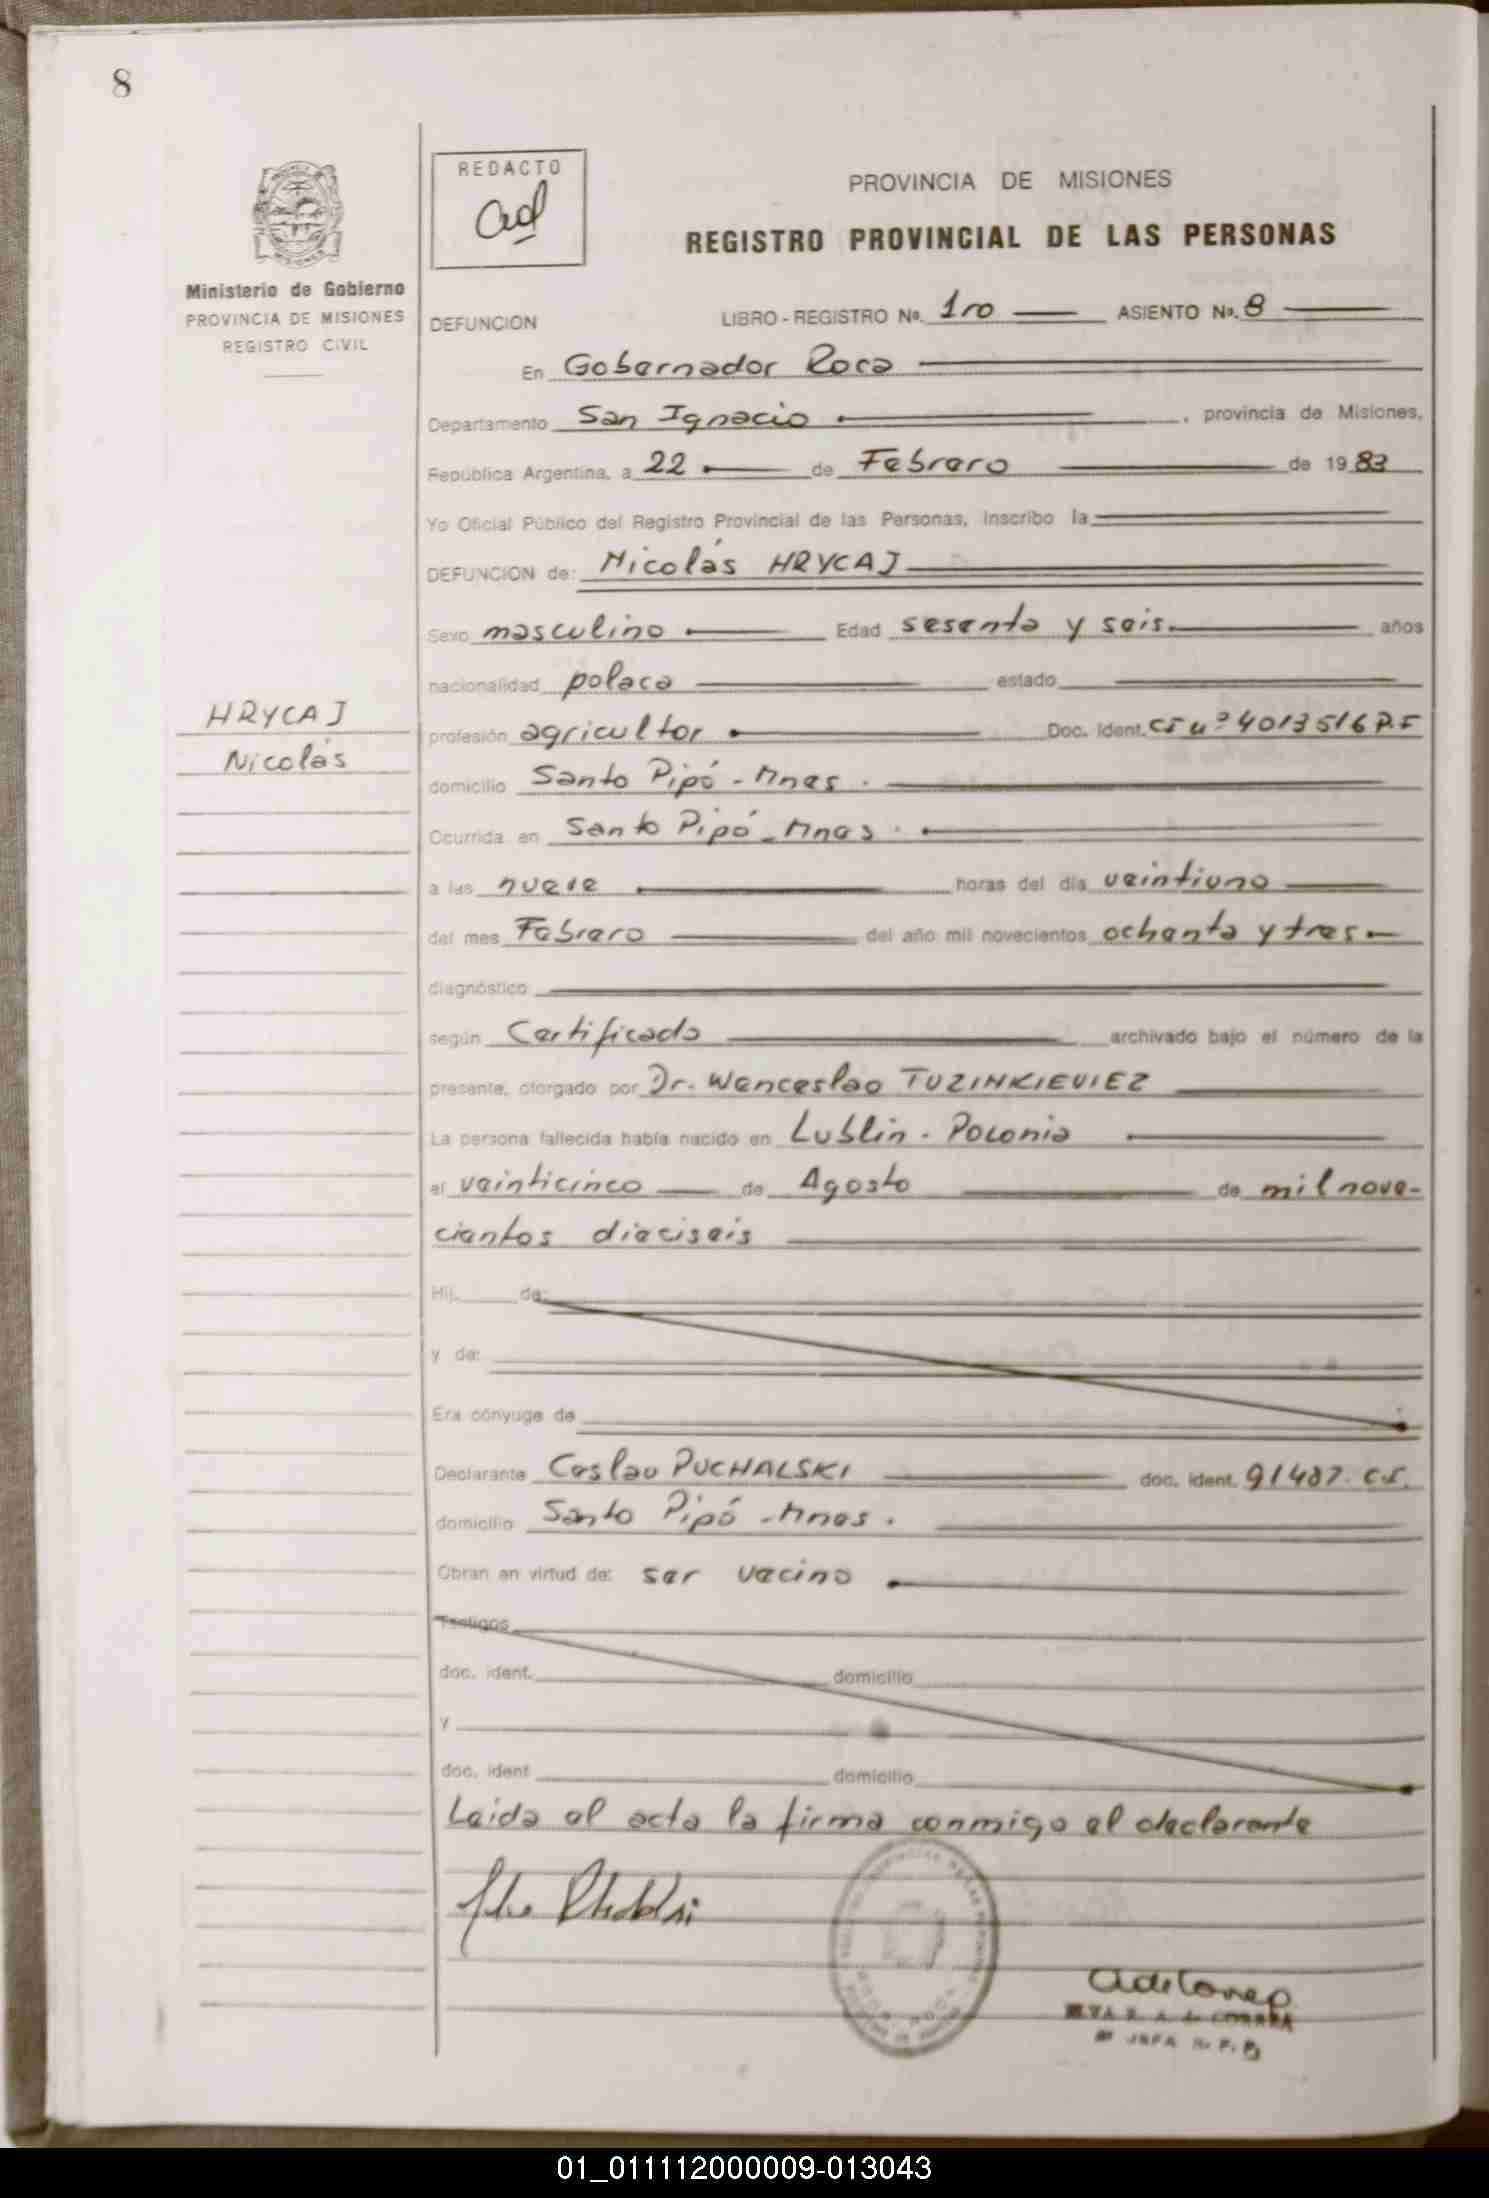 8
REDACTO
PROVINCIA DE MISIONES
REGISTRO PROVINCIAL DE LAS PERSONAS
Ministerio de Gobierno
PROVINCIA DE MISIONES
REGISTRO CIVIL
DEFUNCION LIBRO-REGISTRO Nº. 1ro ASIENTO Nº. 8
En Gobernador Roca
Departamento San Ignacio, provincia de Misiones,
República Argentina, a 22 de Febrero de 1983
Yo Oficial Público del Registro Provincial de las Personas, inscribo la
DEFUNCION de: Nicolás HRYCAJ
Sexo masculino Edad sesenta y seis años
nacionalidad polaca estado
HRYCAJ
Nicolás
profesión agricultor Doc. Ident. CI nº 4013516 P.F
domicilio Santo Pipó - Mnes.
Ocurrida en Santo Pipó - Mnes.
a las nueve horas del día veintiuno
del mes Febrero del año mil novecientos ochenta y tres
diagnóstico
según Certificado archivado bajo el número de la
presente, otorgado por Dr. Wenceslao TUZINKIEVIEZ
La persona fallecida había nacido en Lublin - Polonia
el veinticinco de Agosto de mil nove-
cientos dieciseis
Hij de:
y de:
Era cónyuge de
Declarante Ceslao PUCHALSKI doc. ident. 91487. C.I.
domicilio Santo Pipó - Mnes.
Obran en virtud de: ser vecino
Testigos
doc. ident. domicilio
y
doc. ident domicilio
Leida el acta la firma conmigo el declarante
01_011112000009-013043